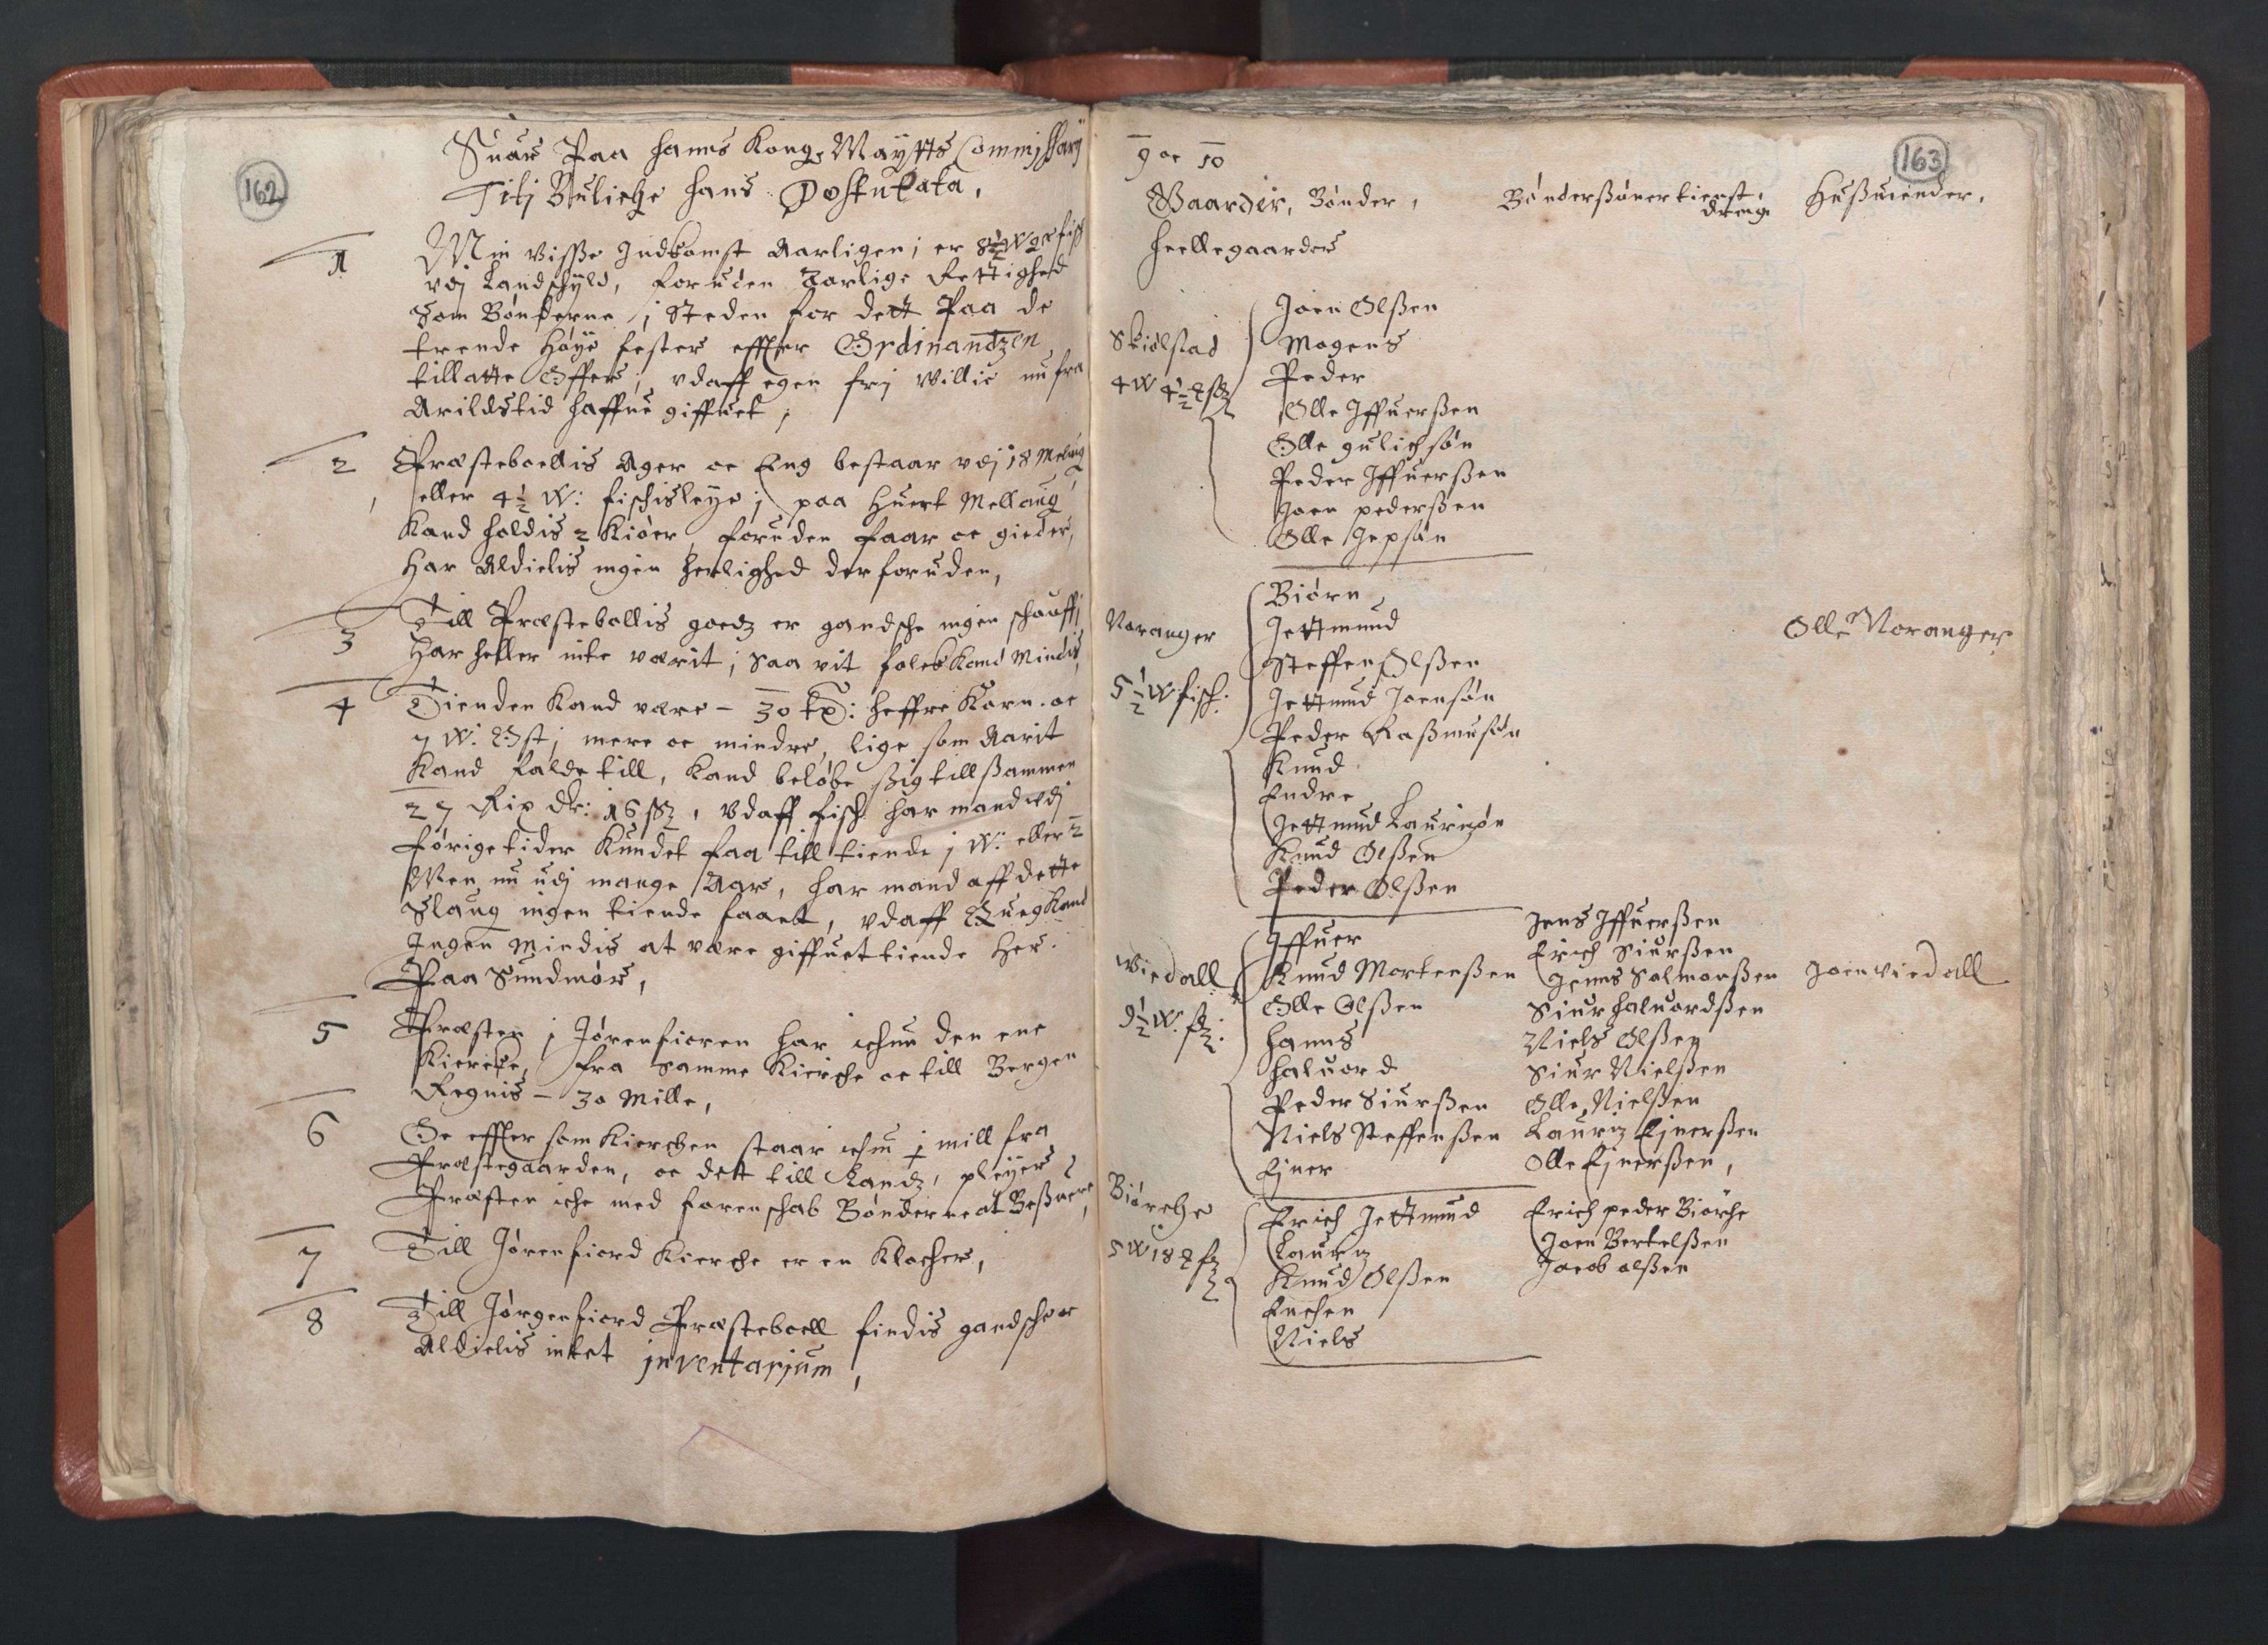 162
Suar Paa hanns Kong. Maytts Commissarij
Titj Buliche hans Postulata,
1 Min Visse Indkomst Aarligen; er 8½ W 2 fisch
vdj Landschyld, foruden Aarlige Rettighed
Som Bønderne j Steden for dett Paa de
trende Høye fester effter Ordinandtzen
tillatte Offer; vdaff egen frj Villie nu fra
Arildstid haffue giffuet;
2 Præsteboellis Ager oc Eng bestaar vdj 18 Melaug
eller 4½ W: fischisleye; paa Huert Mellaug
Kand holdis 2 Kiøer, foruden faar oc gieder,
Har Aldielis ingen herlighed der foruden,
3 Till Præstebollis goedz er gandsche ingen schouff;
Har heller icke værit; saa vit folck Kand Mindis
4 Tienden Kand være – 30 tr: Haffre Korn. oc
7 W: Ost; mere oc mindre, lige som Aarit
Kand falde till, Kand beløbe sig till sammen
27 Rix dr: 16 ß, Vdaff fisch har mand vdj
førige tider Kundet faa till tiende j W: eller 2
Men nu udj mange Aar, har mand aff dette
Slaug ingen tiende faaet, vdaff Queg Kand
Ingen Mindis at være giffuet tiende Her
Paa Sundmør,
5 Præsten j Jørenfioren har ichun den ene
Kiercke, fra samme Kierche oc till Bergen
Regnis – 30 Mille,
6 Oc effter som Kierchen staar ichun j mill fra
Præstegaarden, oc dett till Landz, pleyer
Præsten iche med førenschab Bønderne at Besuere,
7 Till Jørenfiord Kierche er en Klocher,
8 Till Jørgenfiord Præsteboell findis gandsche oc
Aldielis intet inventarium,
163
9 oc 10
Gaarder, Bønder, Bøndersønner tienst drenge Husmender,
Heellegaarder
Skiølstad
4 W 4½
Joen Olßen
Mogens
Peder
Olle Iffuerßen
Olle gulichsøn
Peder Iffuerßen
Joen pederßen
Olle Jepsøn
Noranger
5½ W: fisch:
Biørn
Jettmund
Steffen Olßen
Jettmud Joensøn
Peder Raßmusøn
Knud
Endre
Jettmud Lauritzøn
Knud Olßen
Peder Olßen
Olle Noranger
Viedall
9½ W:
Iffuer
Knud Mortenßen
Olle Olßen
Hanns
Haluord
Peder Siurßen
Niels Steffenßen
Ejner
Jens Iffuerßen
Erich Siurßen
Jenns Salmonßen
Siur Haluordßen
Niels Olßen
Siur Nielßen
Olle Nielßen
Lauritz Ejnerßen
Olle Ejnerßen,
Joen Viedall
Biørche
5 W 18
Erich Jettmund
Lauritz
Knud Olßen
Enchen
Niels
Erich peder Biørche
Joen Bertelßen
Jacob olßen